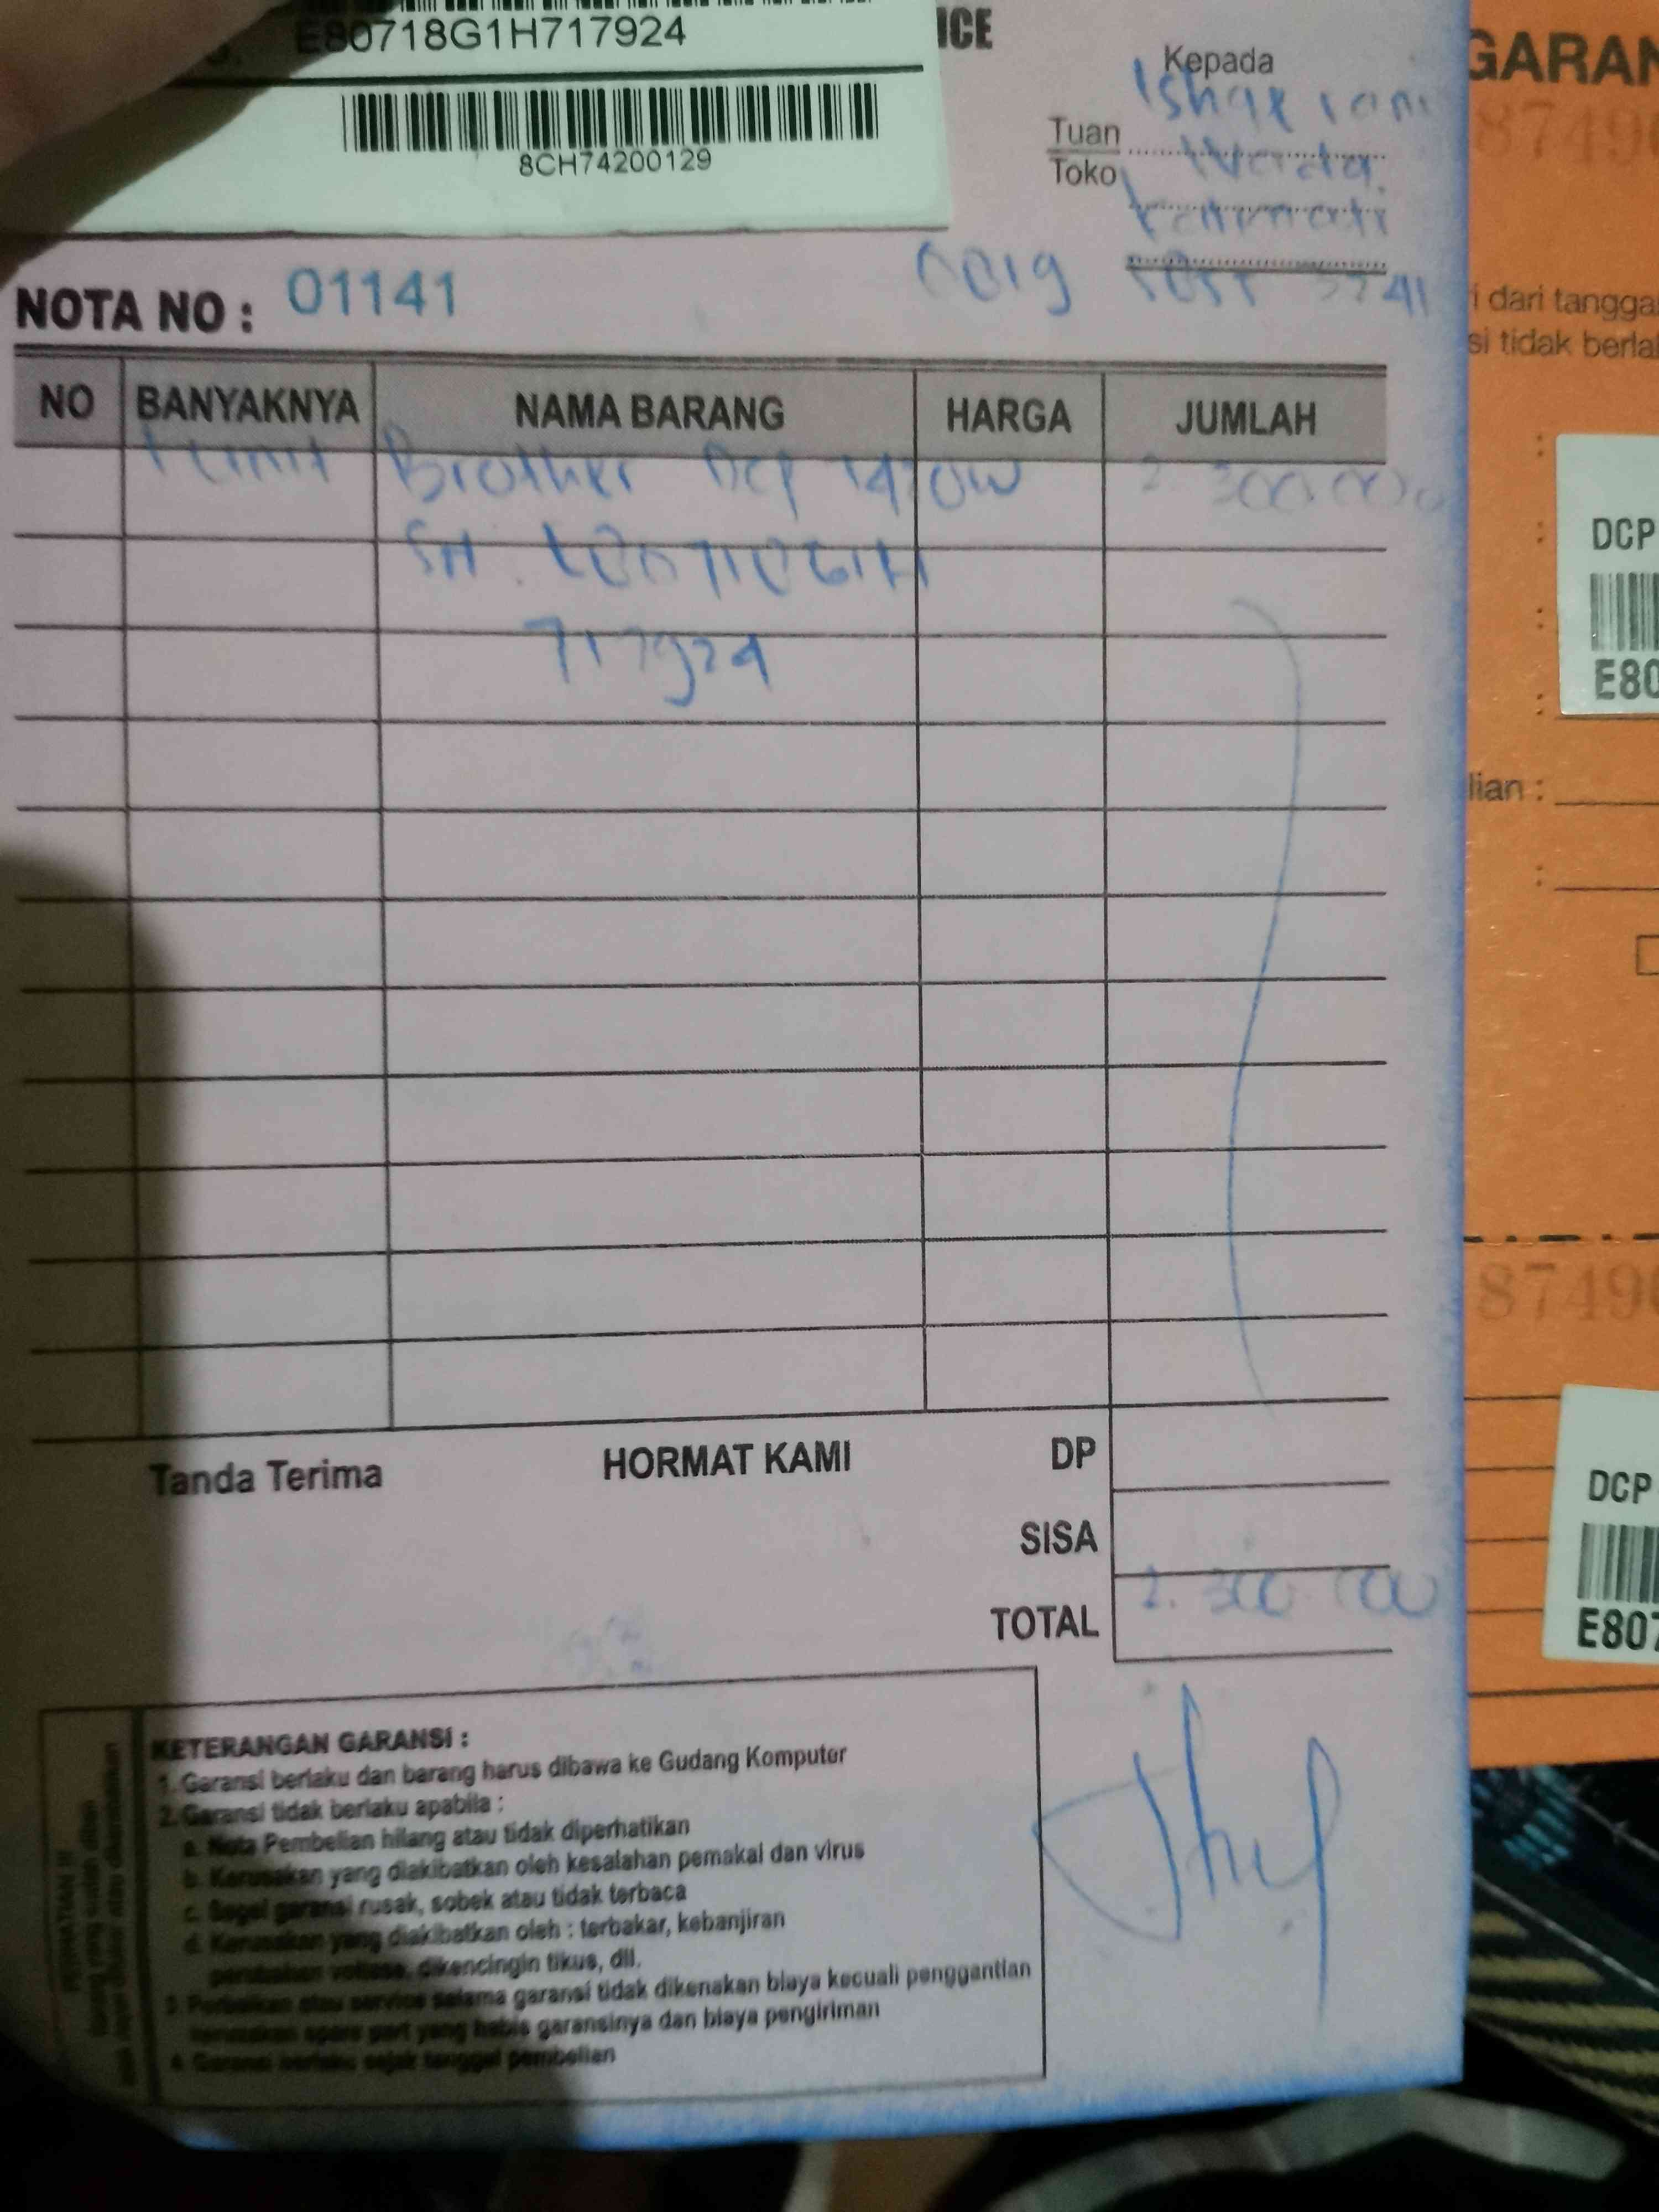 E80718G1H717924
8CH74200129
ICE
Kepada
Tuan
Toko
NOTA NO : 01141
NO BANYAKNYA NAMA BARANG HARGA JUMLAH
1 unit Brother DCP 2.300.000
SN. E80718G1H
717924
Tanda Terima HORMAT KAMI DP
SISA
TOTAL 2.300.000
KETERANGAN GARANSI :
1. Garansi berlaku dan barang harus dibawa ke Gudang Komputer
2. Garansi tidak berlaku apabila :
a. Nota Pembelian hilang atau tidak diperhatikan
b. Kerusakan yang diakibatkan oleh kesalahan pemakai dan virus
c. Segel garansi rusak, sobek atau tidak terbaca
d. Kerusakan yang diakibatkan oleh : terbakar, kebanjiran
perubahan voltase, dikencingin tikus, dll.
3. Perbaikan atau service selama garansi tidak dikenakan biaya kecuali penggantian
kerusakan spare part yang habis garansinya dan biaya pengiriman
4. Garansi berlaku sejak tanggal pembelian
PERHATIAN !!!
GARAN
87490
i dari tangga
si tidak berla
:
:
:
:
DCP
E80
lian :
:
87490
DCP
E807